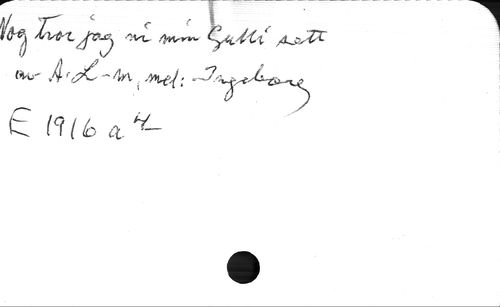 Nog tror jag ni min Gulli sett
m A. L-m, mel: Ingeborg
E 1916 a 4